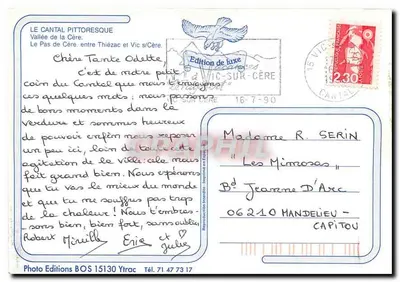 LE CANTAL PITTORESQUE
Vallée de la Cère.
Le Pas de Cère, entre Thiézac et Vic s/Cère.
Edition de luxe
VIC-SUR-CERE
16-7-90
15 VIC
CANTAL
2.30
Chère Tante Odette,
C'est de notre petit
coin du Cantal que nous t'envoyons
ces quelques mots; nous passons
de bons moments dans la
verdure et sommes heureux
de pouvoir enfin nous reposer
un peu ici, loin de toute cette
agitation de la ville: cela nous
fait grand bien. Nous espérons
que tu vas le mieux du monde
et que tu ne souffres pas trop
de la chaleur! Nous t'embras-
sons bien, bien fort, sans oublier
Robert Mireille Eric et
Julie
Madame R. SERIN
"Les Mimosas"
Bd Jeanne D'Arc
06210 MANDELIEU-
CAPITOU
Photo Editions BOS 15130 Ytrac Tél. 71 47 73 17